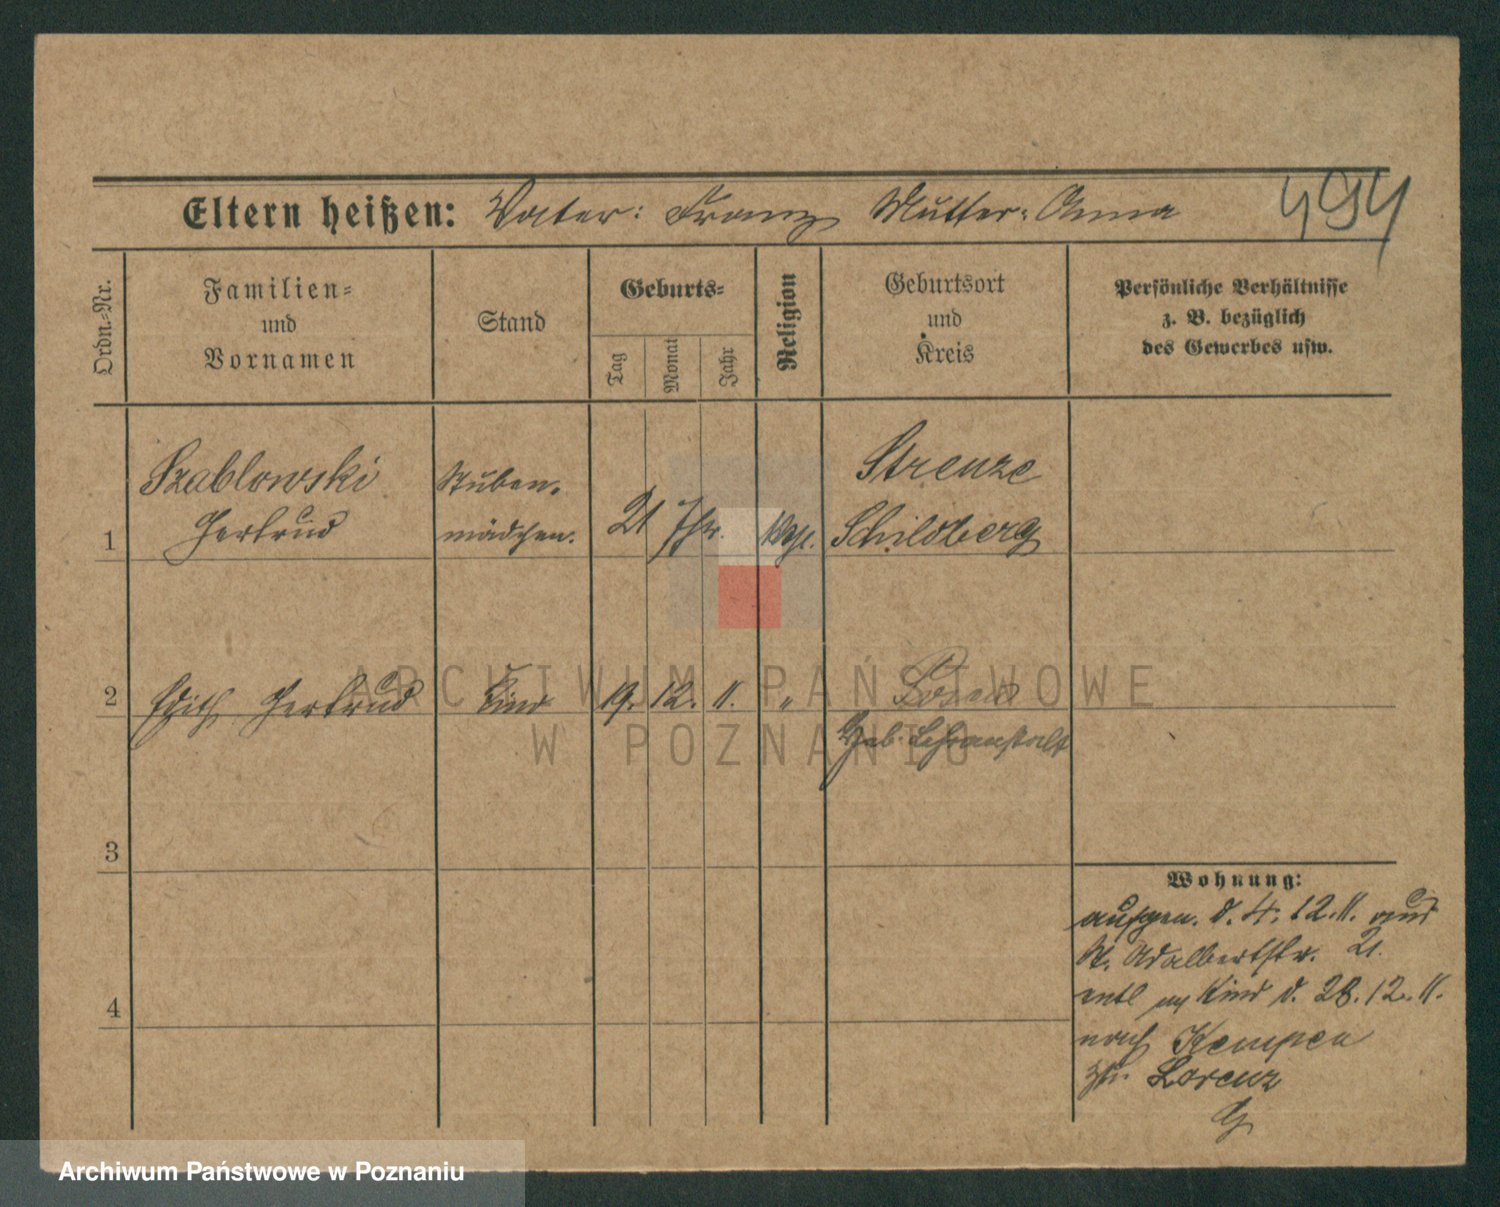 Eltern heißen: Vater: Franz Mutter: Anna
494
Ordn.-Nr.
Familien-
und
Vornamen
Stand
Geburts-
Tag
Monat
Jahr
Religion
Geburtsort
und
Kreis
Persönliche Verhältnisse
z. B. bezüglich
des Gewerbes usw.
1
Szablowski
Gertrud
Stuben-
mädchen.
21 Jhr.
Strenze
Schildberg
2
Edith Gertrud
Kind
19. 12. 11. "
Posen
Heb. Lehranstalt
3
4
Wohnung:
aufgen. d. 4. 12. 11. aus
St. Adalbertstr. 21.
entl. Kind d. 28. 12. 11.
nach Kempen
Lorenz
ARCHIWUM PAŃSTWOWE
W POZNANIU
Archiwum Państwowe w Poznaniu